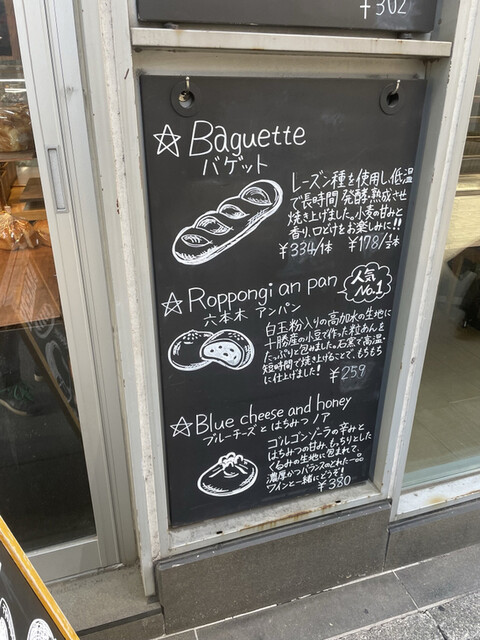 ¥302
☆ Baguette
バゲット
レーズン種を使用し、低温
で長時間 発酵、熟成させ
焼き上げました。小麦の甘みと
香り、口どけをお楽しみに!!
¥334/1本 ¥178/½本
☆ Roppongi an pan
六本木 アンパン
人気
No.1
白玉粉入りの高加水の生地に
十勝産の小豆で作った粒あんを
たっぷりと包みました。石窯で高温・
短時間で焼き上げることで、もちもち
に仕上げました!
¥259
☆ Blue cheese and honey
ブルーチーズ と はちみつノア
ゴルゴンゾーラの辛みと
はちみつの甘み、もっちりとした
くるみの生地に包まれて、
濃厚かつバランスのとれた一品
ワインと一緒にどうぞ!
¥380